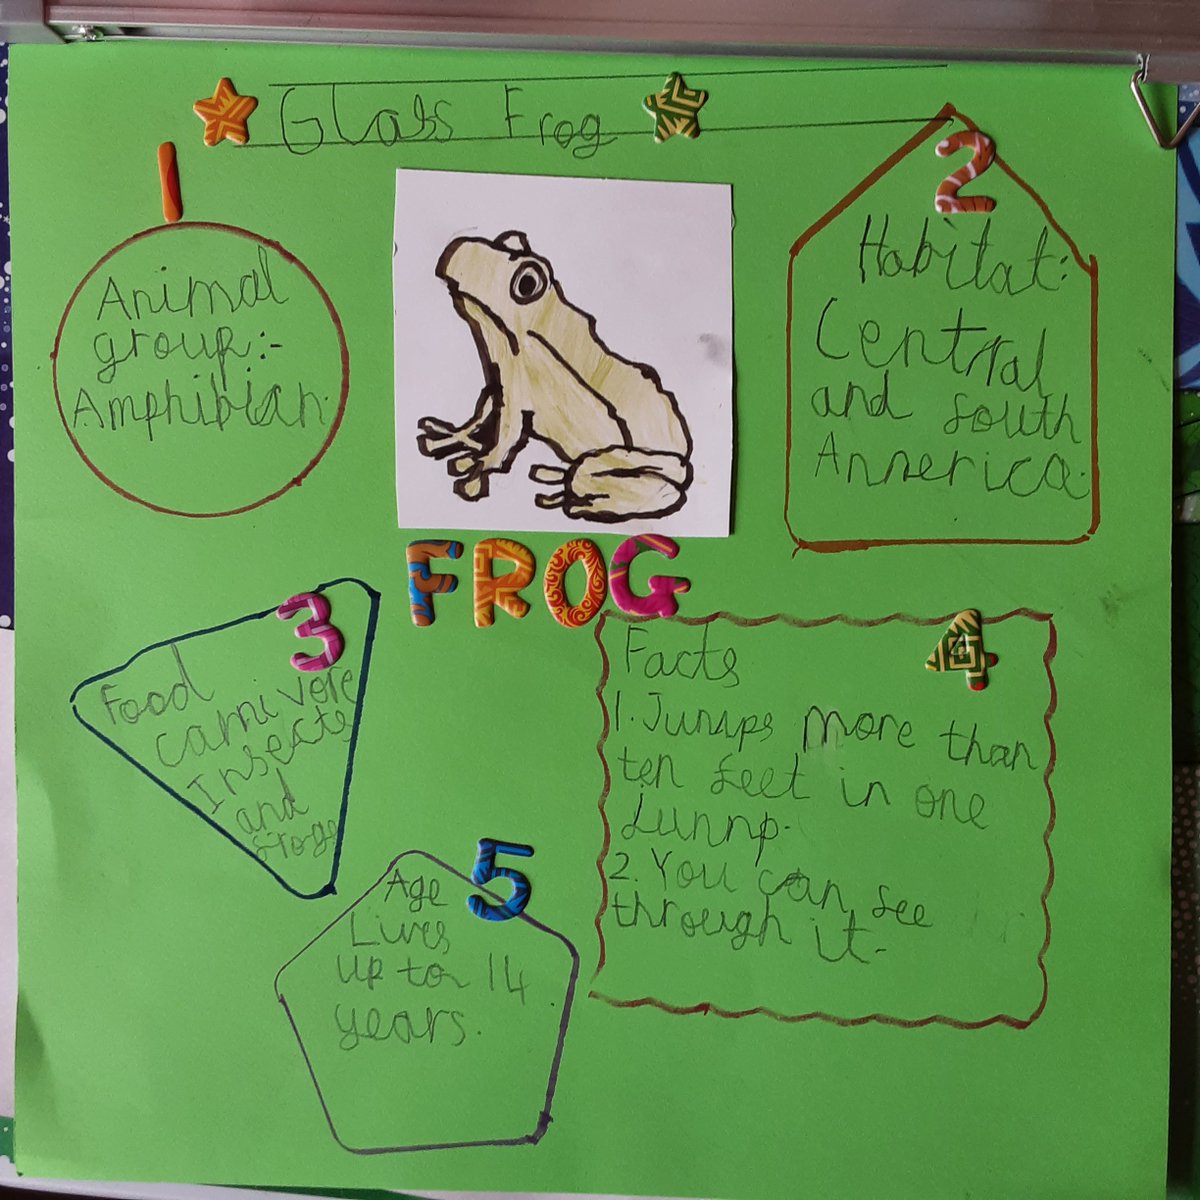 Glass Frog
1
Animal
group:-
Amphibian.
2
Habitat:
Central
and south
America.
FROG
3
Food
carnivore
Insects
and
frogs
4
Facts
1. Jumps more than
ten feet in one
Jump.
2. You can see
through it.
5
Age
Lives
up to 14
years.